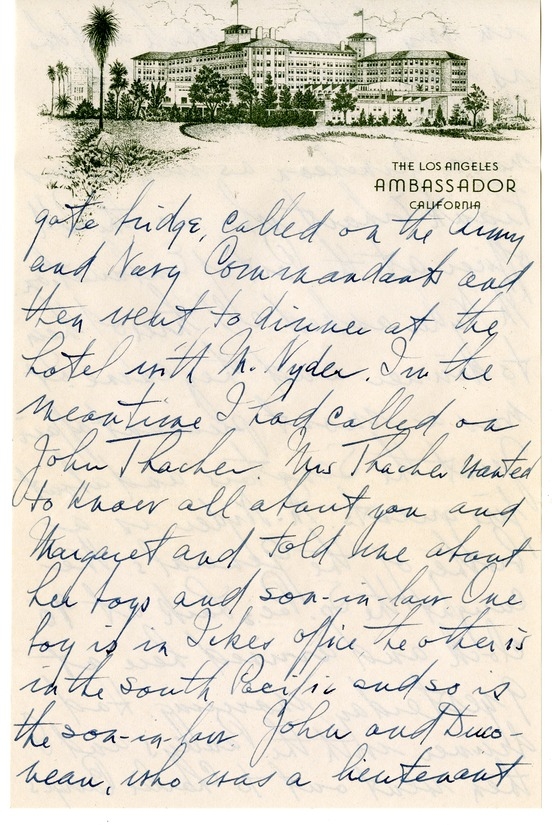 THE LOS ANGELES
AMBASSADOR
CALIFORNIA
gate bridge, called on the Army
and Navy Commandants and
then went to dinner at the
hotel with M. Nyder. In the
meantime I had called on
John Thacher. Mrs Thacher wanted
to know all about you and
Margaret and told me about
her boys and son-in-law. One
boy is in Ickes office, the other is
in the south Pacific and so is
the son-in-law. John and Dono-
van, who was a lieutenant